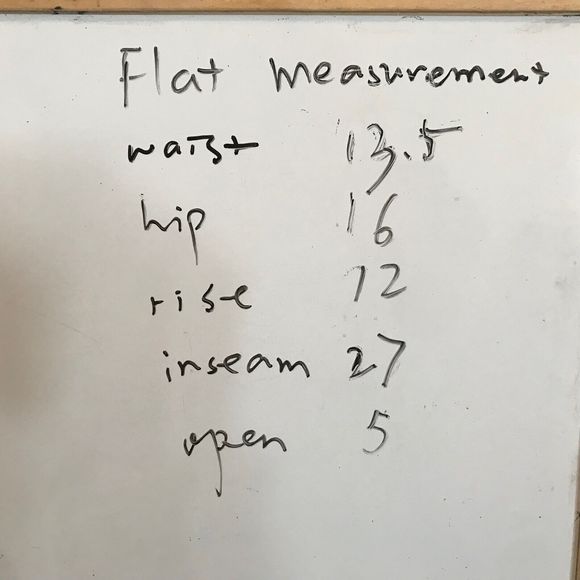 Flat measurement
waist 13.5
hip 16
rise 12
inseam 27
open 5